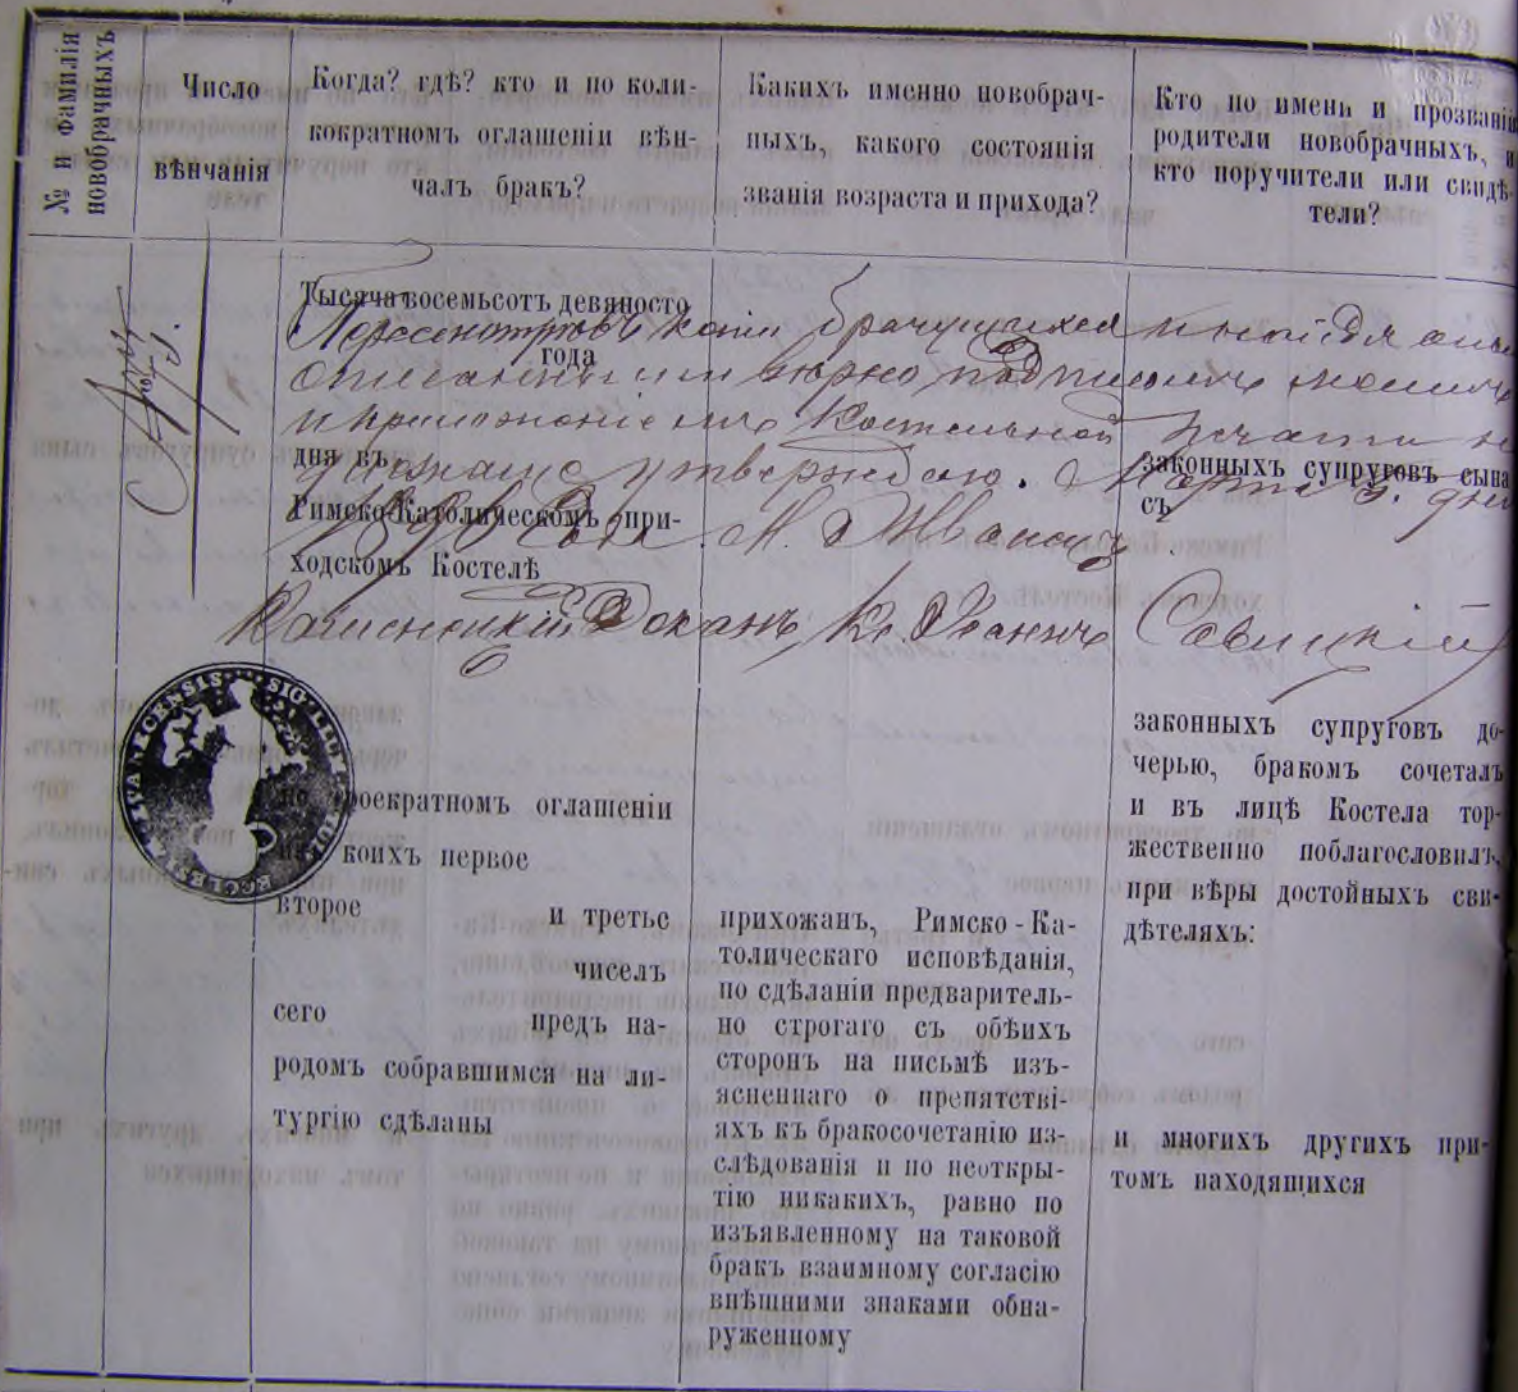 № и фамилія
новобрачныхъ
Число
вѣнчанія
Когда? гдѣ? кто и по коли-
кократномъ оглашеніи вѣн-
чалъ бракъ?
Какихъ именно новобрач-
ныхъ, какого состоянія
званія возраста и прихода?
Кто по имени и прозванію
родители новобрачныхъ, и
кто поручители или свидѣ-
тели?
Тысяча восемьсотъ девяносто
года
дня въ
Римско-Католическомъ при-
ходскомъ Костелѣ
по троекратномъ оглашеніи
изъ коихъ первое
второе и третье
чиселъ
сего предъ на-
родомъ собравшимся на ли-
тургію сдѣланы
прихожанъ, Римско-Ка-
толическаго исповѣданія,
по сдѣланіи предваритель-
но строгаго съ обѣихъ
сторонъ на письмѣ изъ-
ясненнаго о препятстві-
яхъ къ бракосочетанію из-
слѣдованія и по неоткры-
тію никакихъ, равно по
изъявленному на таковой
бракъ взаимному согласію
внѣшними знаками обна-
руженному
законныхъ супруговъ сына
съ
законныхъ супруговъ до-
черью, бракомъ сочеталъ
и въ лицѣ Костела тор-
жественно поблагословилъ,
при вѣры достойныхъ сви-
дѣтеляхъ:
и многихъ другихъ при-
томъ находящихся
копіи брачущихся
вѣрно подписомъ моимъ
и приложеніемъ Костельной печати
утверждаю. Марта дня
1890 года. М. Жванецъ.
Каменецкій Деканъ Кс. Іоаннъ Савицкій
SIGILLUM ECCLE ZWANICENSIS